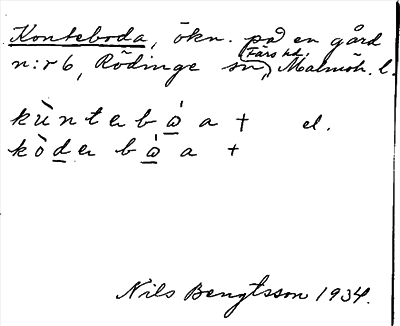 Konteboda, ökn. på en gård
n:r 6, Rödinge sn, (Färs hd.) Malmöh. l.
kùntebώ̣a + el.
kòder bώ̣a +
Nils Bengtsson 1934.